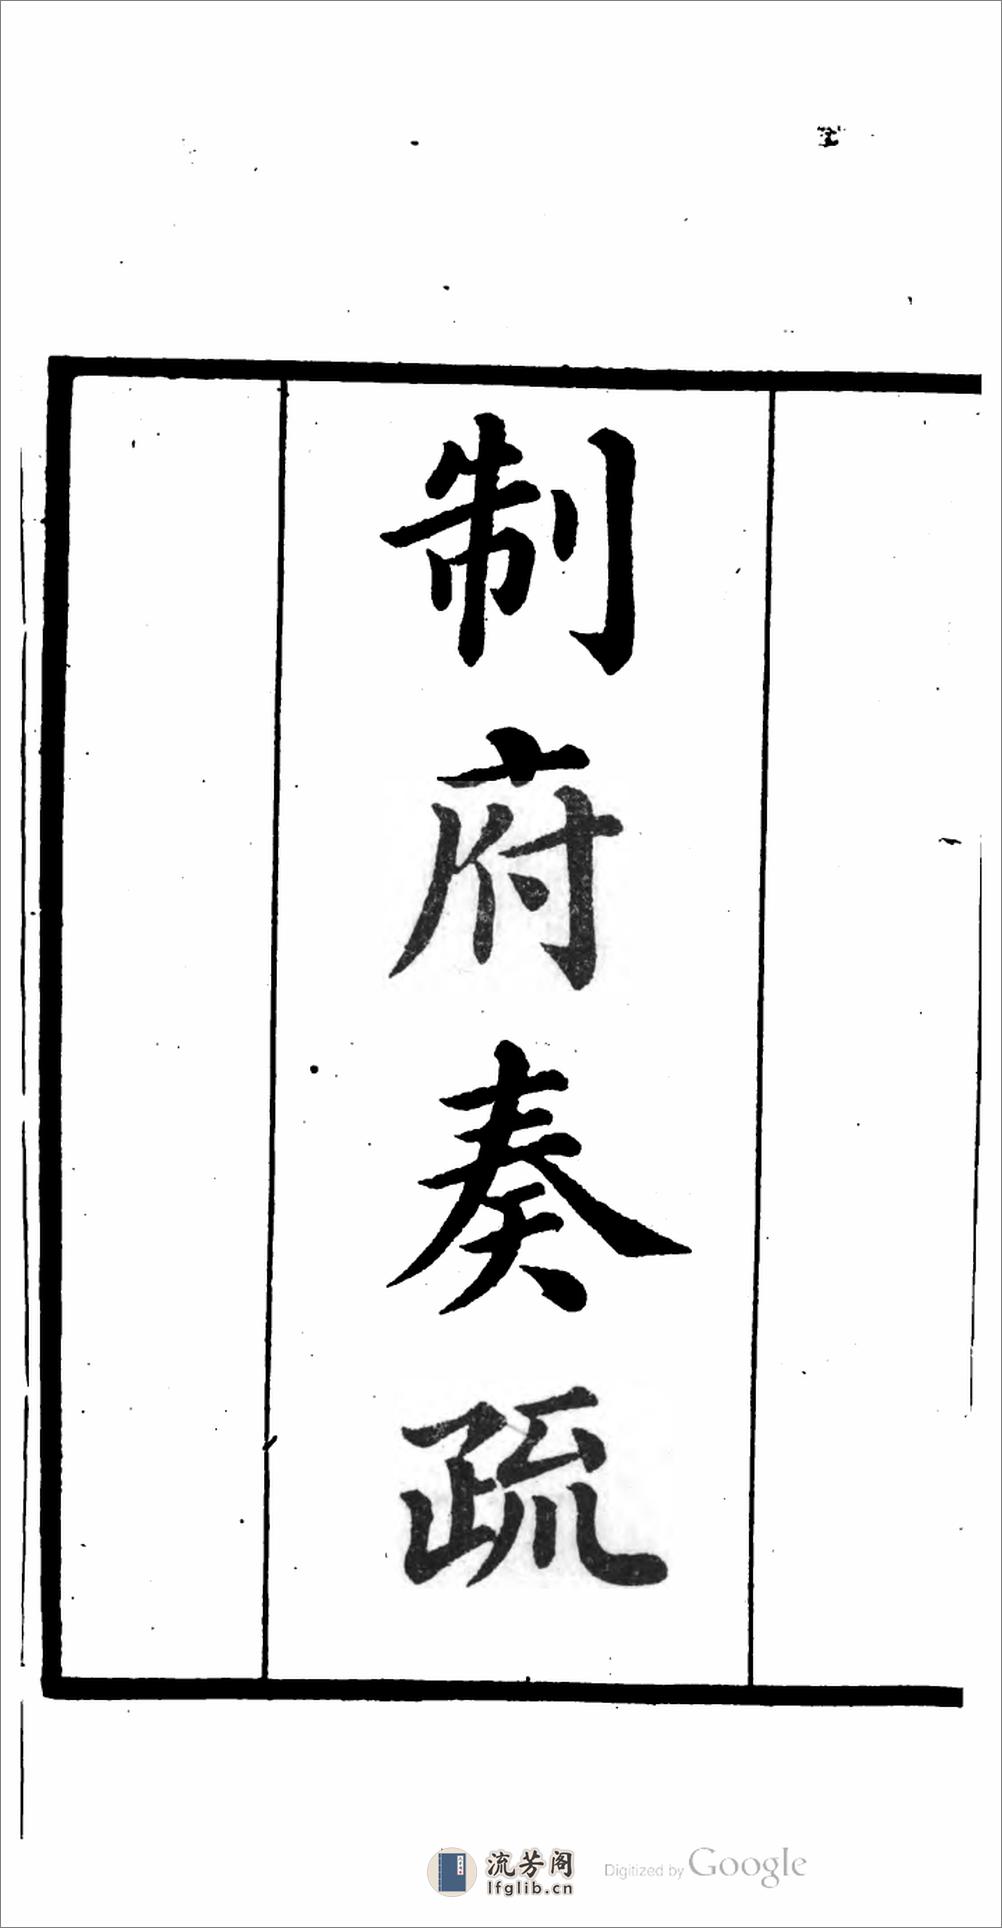 制府奏疏
流芳阁
lfglib.cn
Digitized by Google